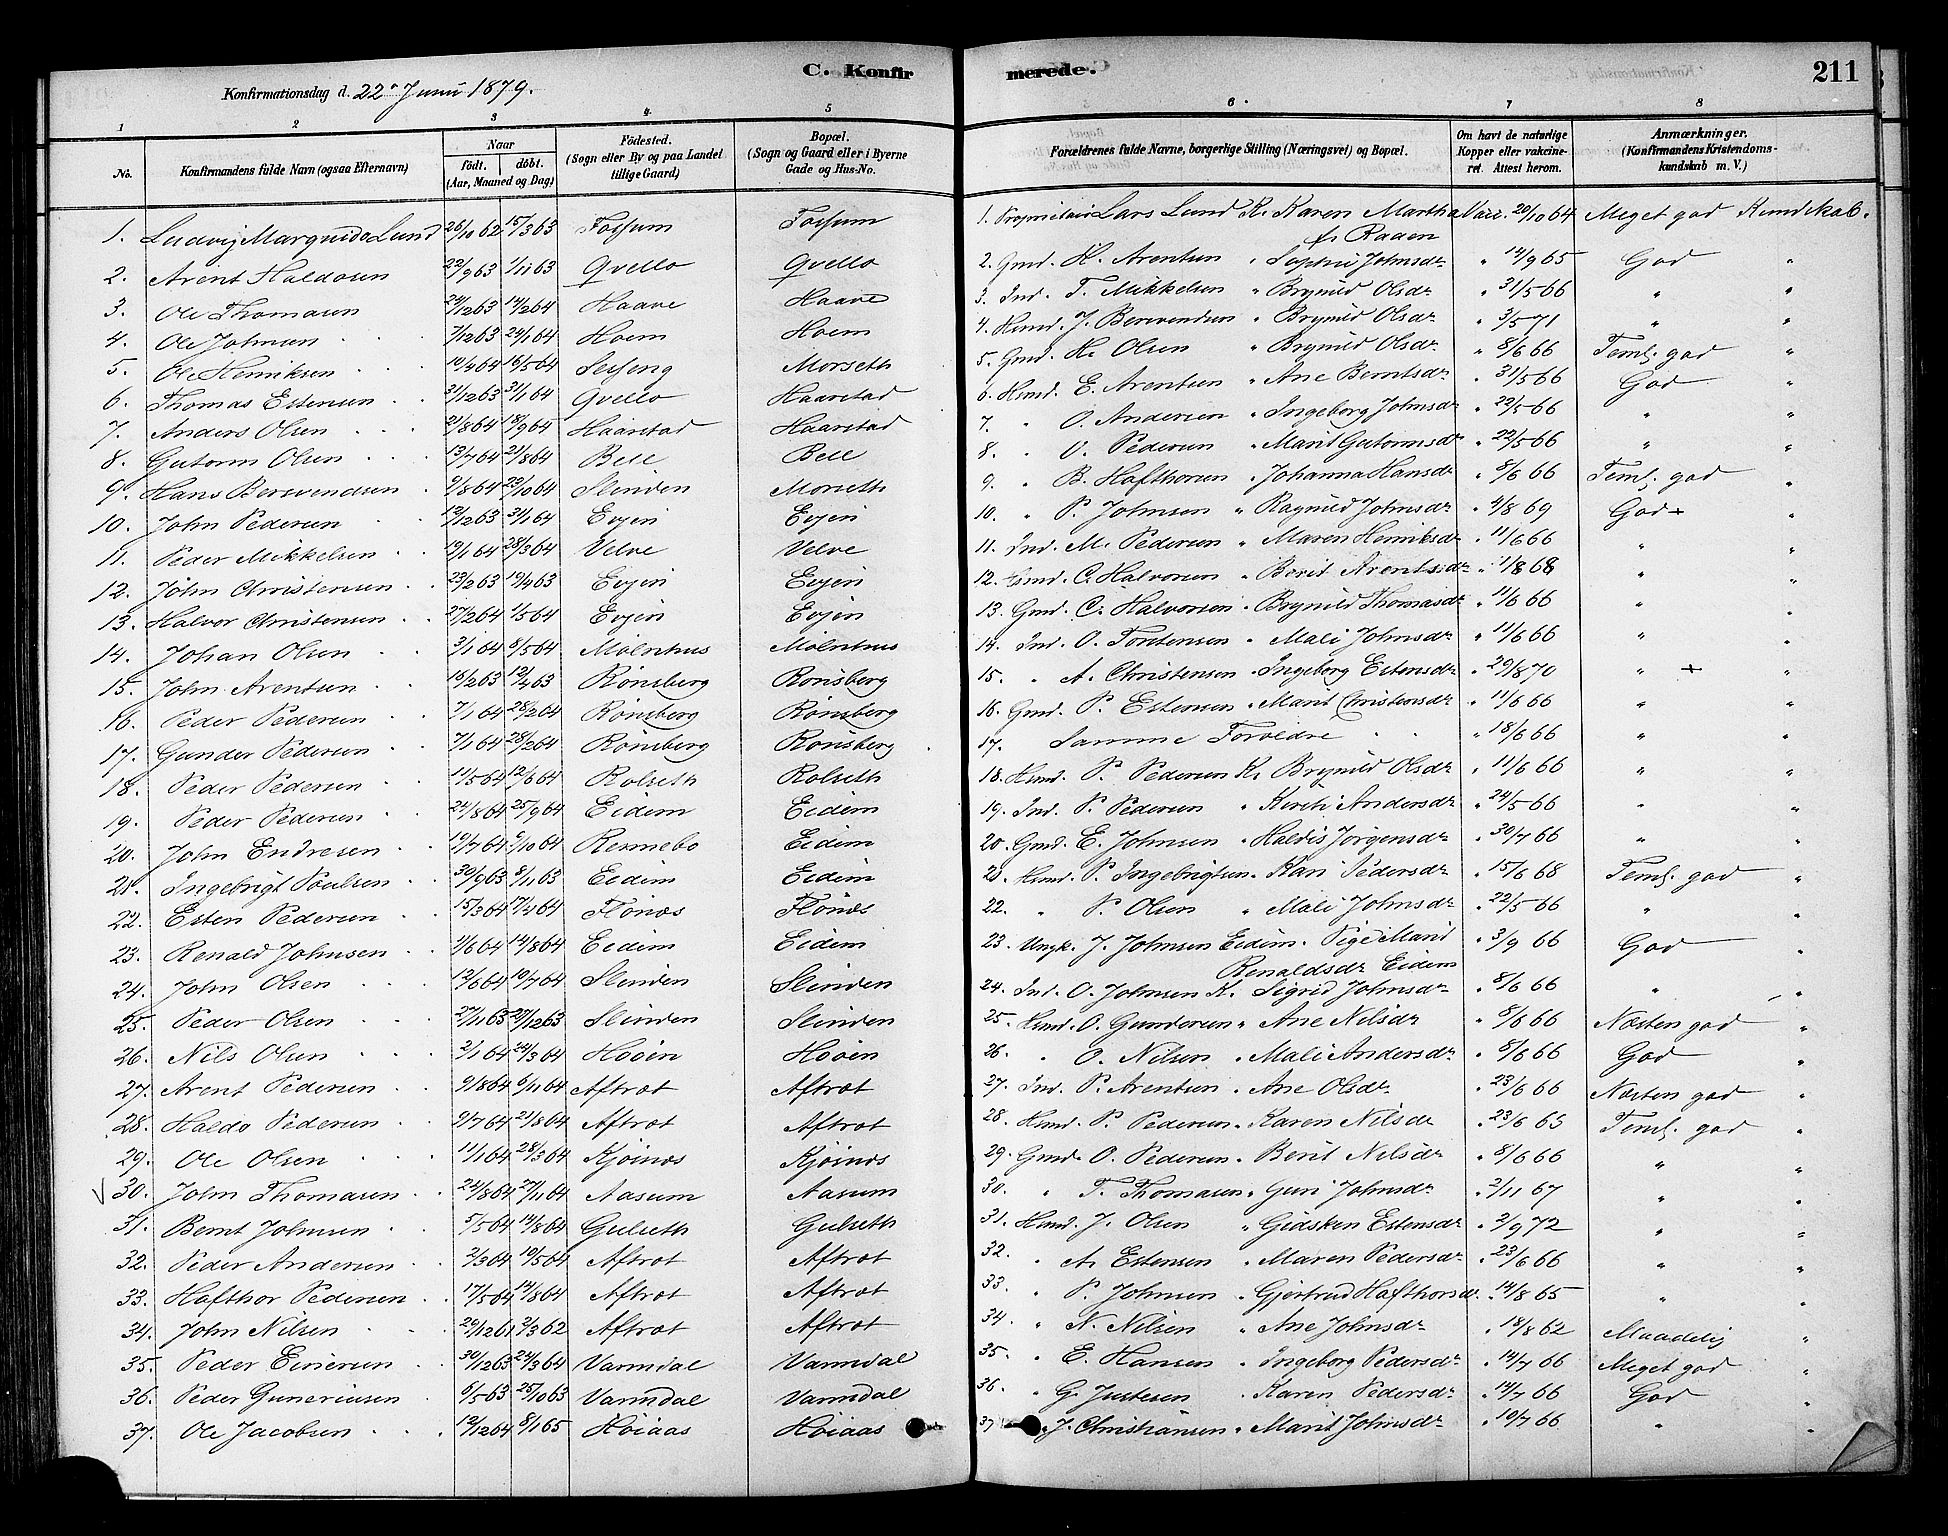 C. Konfirmerede. 211
Konfirmationsdag d. 22. Juni 1879.
1 2 3 4 5 6 7 8
No. Konfirmandens fulde Navn (ogsaa Efternavn) Naar født. døbt. (Aar, Maaned og Dag) Födested. (Sogn eller By og paa Landet tillige Gaard) Bopæl. (Sogn og Gaard eller i Byerne Gade og Hus-No. Forældrenes fulde Navne, borgerlige Stilling (Næringsvei) og Bopæl. Om havt de naturlige Kopper eller vakcineret. Attest herom. Anmærkninger. (Konfirmandens Kristendomskundskab m. V.)
1. Ludvig Marquido Lund 26/10 62 15/3 63 Fossum Fossum 1. Proprietair Lars Lund K. Karen Martha Vacc. 20/10 64 Meget god Kundskab.
f. Raaen
2. Arent Haldosen 22/9 63 1/11 63 Qvello Qvello 2. Gmd. H. Arentsen " Sophie Johnsdr " 14/9 65 God "
3. Ole Thomasen 24/12 63 14/2 64 Haave Haave 3. Ind. T. Mikkelsen " Brynild Olsdr " 31/5 66 " "
4. Ole Johnsen 7/12 63 24/1 64 Hoem Hoem 4. Husmd. J. Bersvendsen " Brynild Olsdr " 3/5 71 " "
5. Ole Henriksen 19/4 64 16/5 64 Sesseng Morseth 5. Gmd. H. Olsen " Brynild Olsdr " 8/6 66 Teml. god "
6. Thomas Estensen 31/12 63 31/1 64 Qvello Haarstad 6. Husmd. E. Arentsen " Ane Berntsdr " 31/5 66 God "
7. Anders Olsen 21/8 64 18/9 64 Haarstad Haarstad 7. " O. Andersen " Ingeborg Johnsdr " 22/5 66 " "
8. Gutorm Olsen 13/7 64 21/8 64 Bell Bell 8. " O. Pedersen " Marit Gutormsdr " 22/5 66 " "
9. Hans Bersvendsen 9/8 64 23/10 64 Slinden Morseth 9. " B. Hafthorsen " Johanna Hansdr " 8/6 66 Teml. god "
10. John Pedersen 12/12 63 31/1 64 Evjen Evjen 10. " P. Johnsen " Ragnild Johnsdr " 4/8 69 God + "
11. Peder Mikkelsen 19/1 64 28/3 64 Velve Velve 11. Ind. M. Pedersen " Maren Henriksdr " 11/6 66 " "
12. John Christensen 23/2 63 19/4 63 Evjen Evjen 12. Gmd. C. Halvorsen " Berit Arentsdr " 1/8 68 " "
13. Halvor Christensen 27/2 64 1/5 64 Evjen Evjen 13. Gmd. C. Halvorsen " Brynild Thomasdr " 11/6 66 " "
14. Johan Olsen 3/1 64 8/5 64 Mölnhus Mölnhus 14. Ind. O. Torstensen " Mali Johnsdr " 11/6 66 " "
15. John Arentsen 16/2 63 12/4 63 Rönsberg Rönsberg 15. " A. Christensen " Ingeborg Estensdr " 29/8 70 " + "
16. Peder Pedersen 7/1 64 28/2 64 Rönsberg Rönsberg 16. Gmd. P. Estensen " Marit Christensdr " 11/6 66 " "
17. Gunder Pedersen 7/1 64 28/2 64 Rönsberg Rönsberg 17. Samme Forældre " 18/6 66 " "
18. Peder Pedersen 11/5 64 12/6 64 Rolseth Rolseth 18. Husmd. P. Pedersen K. Brynild Olsdr " 11/6 66 " "
19. Peder Pedersen 24/8 64 25/9 64 Eidem Eidem 19. Ind. P. Pedersen " Kirsti Andersdr " 24/5 66 " "
20. John Endresen 19/7 64 9/10 64 Rennebo Eidem 20. Gmd. E. Johnsen " Haldis Jörgensdr " 30/7 66 " "
21. Ingebrigt Poulsen 30/9 63 8/11 63 Eidem Eidem 21. Husmd. P. Ingebrigtsen " Kari Pedersdr " 15/6 68 Teml. god "
22. Esten Pedersen 15/3 64 17/4 64 Flönæs Flönæs 22. " P. Olsen " Mali Johnsdr " 22/5 66 " "
23. Renald Johnsen 2/6 64 14/8 64 Eidem Eidem 23. Ungk. J. Johnsen Eidem. Pige Marit " 3/9 66 God "
Renaldsdr Eidem
24. John Olsen 12/6 64 10/7 64 Slinden Slinden 24. Ind. O. Johnsen K. Sigrid Johnsdr " 8/6 66 " "
25. Peder Olsen 27/11 63 27/12 63 Slinden Slinden 25. Husmd. O. Gundersen " Ane Nilsdr " 8/6 66 Næsten god "
26. Nils Olsen 2/1 64 24/3 64 Hööen Hööen 26. " O. Nilsen " Mali Andersdr " 8/6 66 God "
27. Arent Pedersen 9/8 64 6/11 64 Aftrot Aftrot 27. Ind. P. Arentsen " Ane Olsdr " 23/6 66 Næsten god "
28. Haldo Pedersen 2/7 64 21/8 64 Aftrot Aftrot 28. Husmd. P. Pedersen " Karen Nilsdr " 23/6 65 Teml. god "
29. Ole Olsen 11/1 64 28/3 64 Kjösnæs Kjösnæs 29. Gmd. O. Pedersen " Berit Nilsdr " 8/6 66 " "
30. John Thomasen 24/8 64 27/11 64 Aasum Aasum 30. " T. Thomasen " Guri Johnsdr " 2/11 67 " "
31. Bernt Johnsen 5/5 64 14/8 64 Gulseth Gulseth 31. Husmd. J. Olsen " Gidsken Estensdr " 2/9 72 " "
32. Peder Andersen 2/3 64 10/5 64 Aftrot Aftrot 32. " A. Estensen " Maren Pedersdr " 23/6 66 " "
33. Hafthor Pedersen 17/5 64 14/8 64 Aftrot Aftrot 33. " P. Johnsen " Gjertrud Hafthorsdr " 14/8 65 " "
34. John Nilsen 29/12 61 2/3 62 Aftrot Aftrot 34. " N. Nilsen " Ane Johnsdr " 18/8 62 Maadelig "
35. Peder Eriksen 30/12 63 24/3 64 Varmdal Varmdal 35. " E. Hansen " Ingeborg Pedersdr " 14/7 66 Meget god "
36. Peder Gunerinsen 6/5 63 25/10 63 Varmdal Varmdal 36. " G. Justesen " Karen Pedersdr " 14/7 66 God "
37. Ole Jacobsen 12/12 64 8/1 65 Höiaas Höiaas 37 J. Christiansen " Marit Johnsdr " 10/7 66 " "